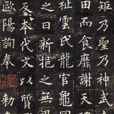 矩乃聖乃神武
田而食靡謝天
祉雲氏龍官龜
之日新挹之無
反本代文以
歐陽詢奉勅